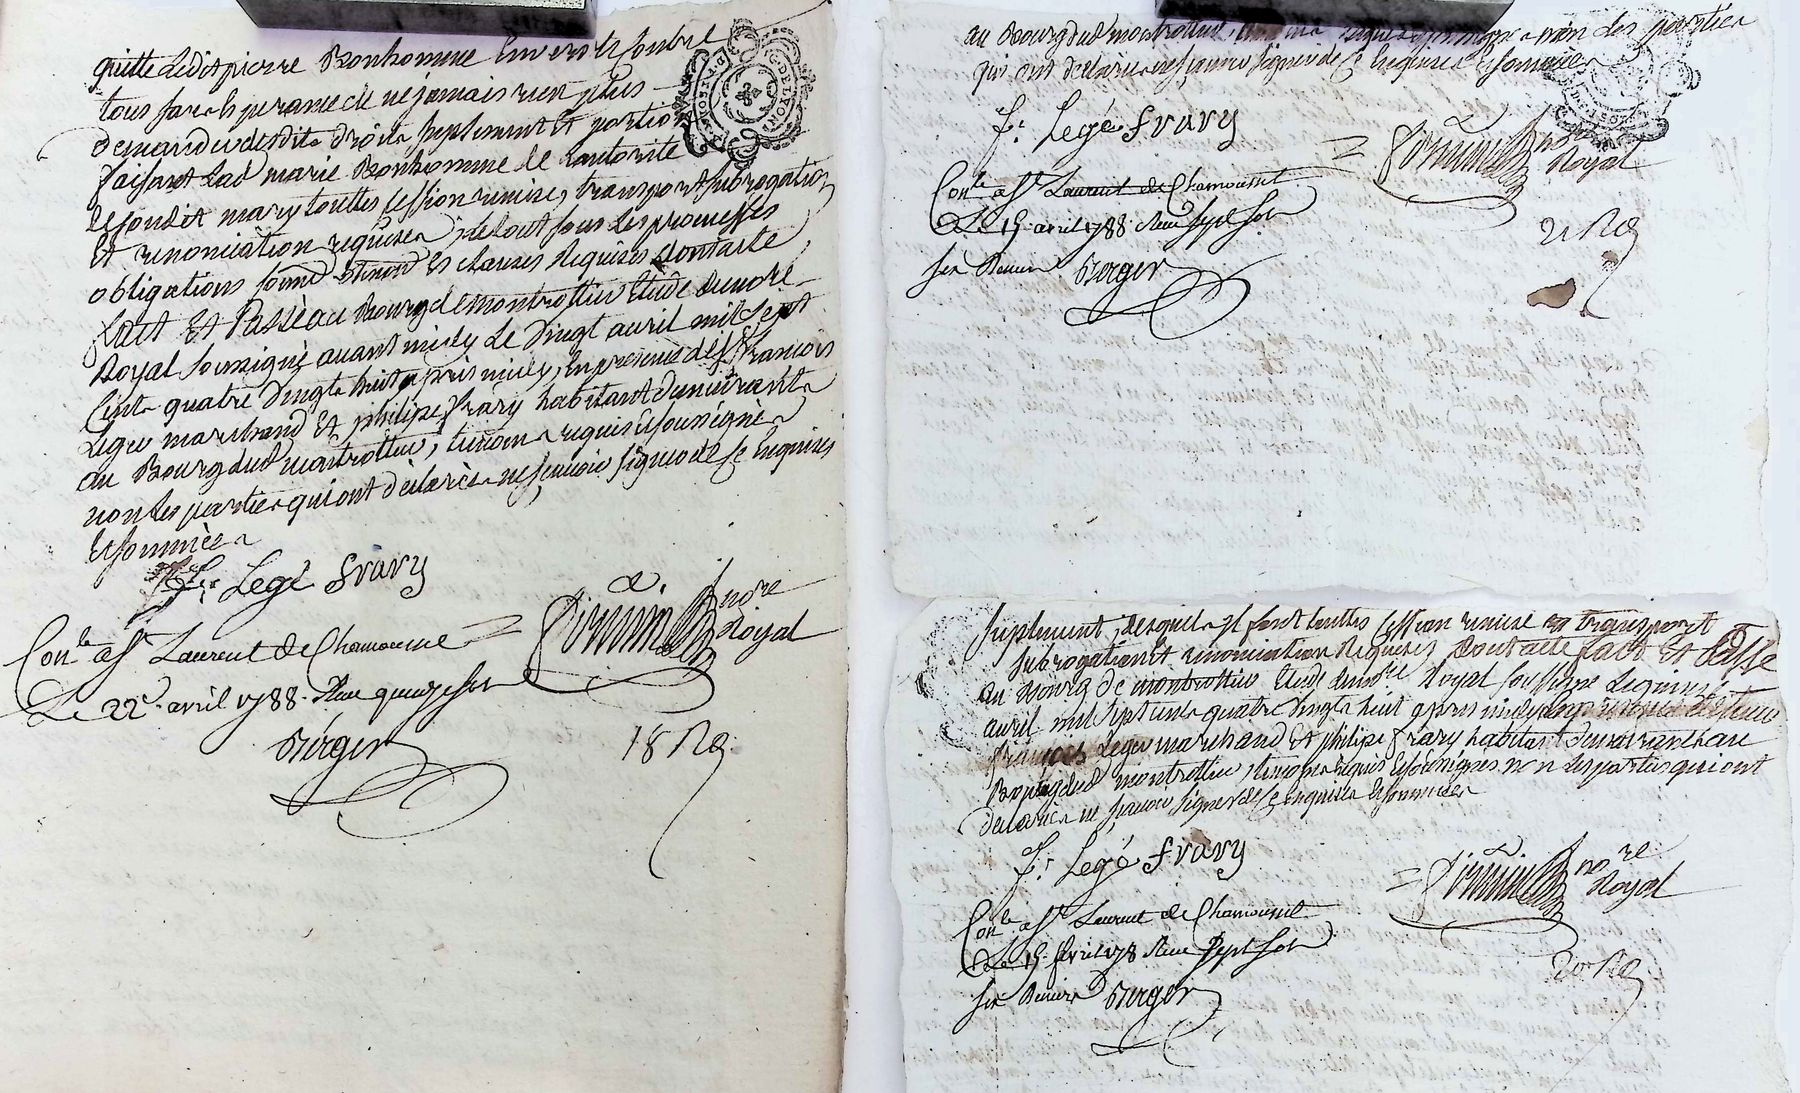 quitte Ledit pierre Bonhomme Envers et Contre
tous sans Esperance de ne jamais rien plus
demander desdits droits suplement Et portion
faisant Lad marie Bonhomme de Lautorité
de sondit mary touttes cession remise, transport subrogation
Et renonciation requises, de tout sous les promesses
obligations soumd renond Et clauses Requises Dont acte
fait Et Passé au Bourg de montrottier Etude du nore
Royal soussigné avant midy Le vingt avril mil sept
Cents quatre vingts huit après midy, En presence de sr francois
Leger marchand Et philipe frary habitant
au Bourg dud montrottier, temoins requis Et soussignés
non les parties qui ont déclarés ne sçavoir signer de ce Enquises
Et sommées
fr. Legé frary
nore
Royal
Conlé a St Laurent de Chamousset
Le 22e avril 1788. Reçu quinze sols
Berger
18 Rg.
au Bourg dud montrottier, requis non les parties
qui ont déclarés ne sçavoir signer de ce Enquises Et sommées
fr. Legé frary
nore
Royal
Conlé a St Laurent de Chamousset
Le 15 avril 1788 Reçu sept sols
six Deniers Berger
Rg
suplement, desquels Il font touttes cession remise Et transport
subrogation Et renonciation Requises Dont acte fait Et Passé
au Bourg de montrottier Etude du nore Royal soussigné Le
avril mil sept cents quatre vingts huit après midy En presence de sieur
françois Leger marchand Et philipe frary habitant au
Bourg dud montrottier, temoins requis Et soussignés non les parties qui ont
declarés ne sçavoir signer de ce enquises Et sommées
fr. Legé frary
nore
Royal
Conlé a St Laurent de Chamousset
Le 15 avril 178 Reçu sept sols
six Deniers Berger
Rg